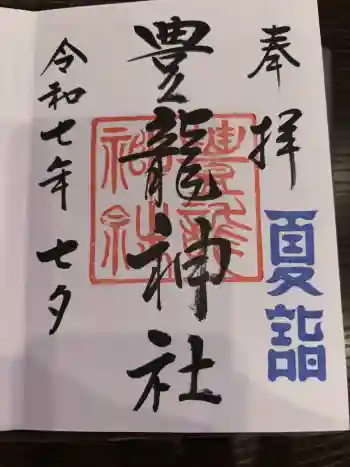 奉拝
夏詣
豊龍神社
豊龍神社
令和七年 七夕